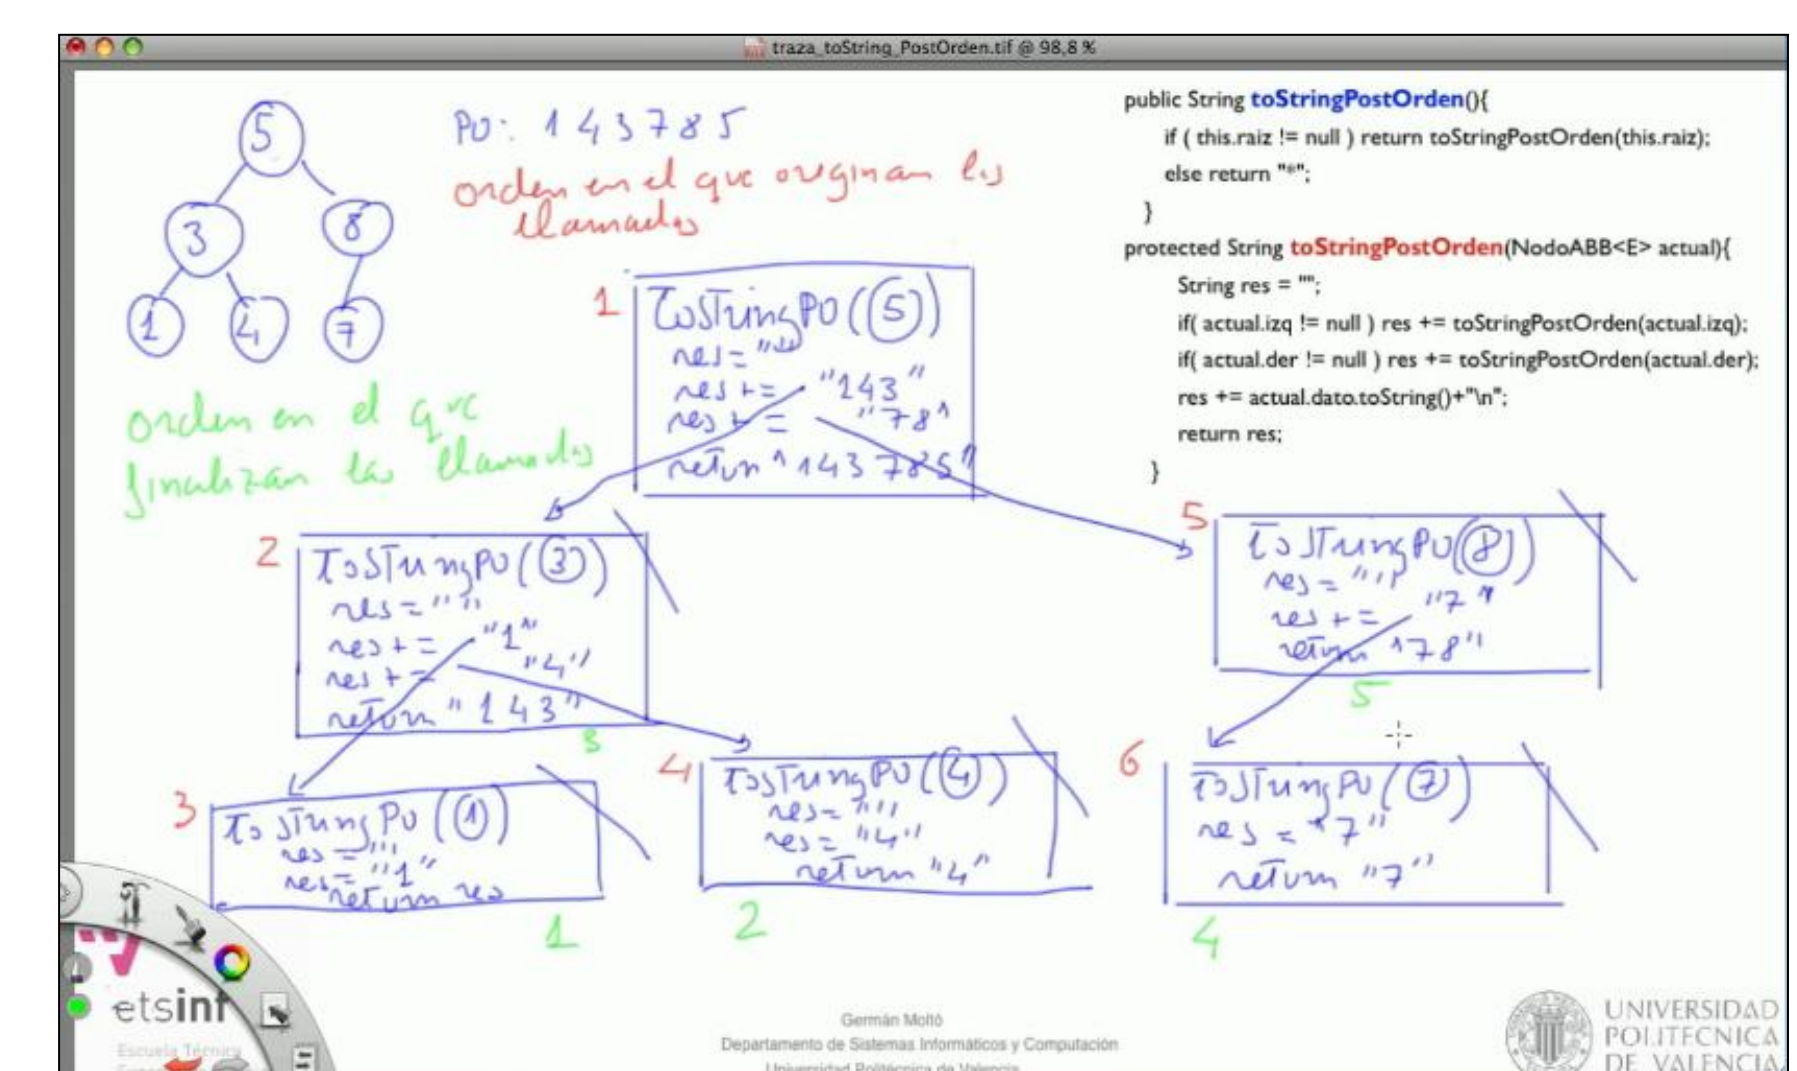 traza_toString_PostOrden.tif @ 98,8 %
5
3
8
1
4
7
PO: 1 4 3 7 8 5
orden en el que originan las
llamadas
orden en el que
finalizan las llamadas
public String toStringPostOrden(){
if ( this.raiz != null ) return toStringPostOrden(this.raiz);
else return "*";
}
protected String toStringPostOrden(NodoABB<E> actual){
String res = "";
if( actual.izq != null ) res += toStringPostOrden(actual.izq);
if( actual.der != null ) res += toStringPostOrden(actual.der);
res += actual.dato.toString()+"\n";
return res;
}
1
toStringPO(5)
res=""
res += "143"
res += "78"
return "143785"
2
toStringPO(3)
res=""
res += "1"
res += "4"
return "143"
3
5
toStringPO(8)
res = ""
res += "7"
return "78"
5
3
toStringPO(1)
res = ""
res = "1"
return res
1
4
toStringPO(4)
res = ""
res = "4"
return "4"
2
6
toStringPO(7)
res = "7"
return "7"
4
etsinf
Escuela Técnica
Germán Moltó
Departamento de Sistemas Informáticos y Computación
Universidad Politécnica de Valencia
UNIVERSIDAD
POLITECNICA
DE VALENCIA